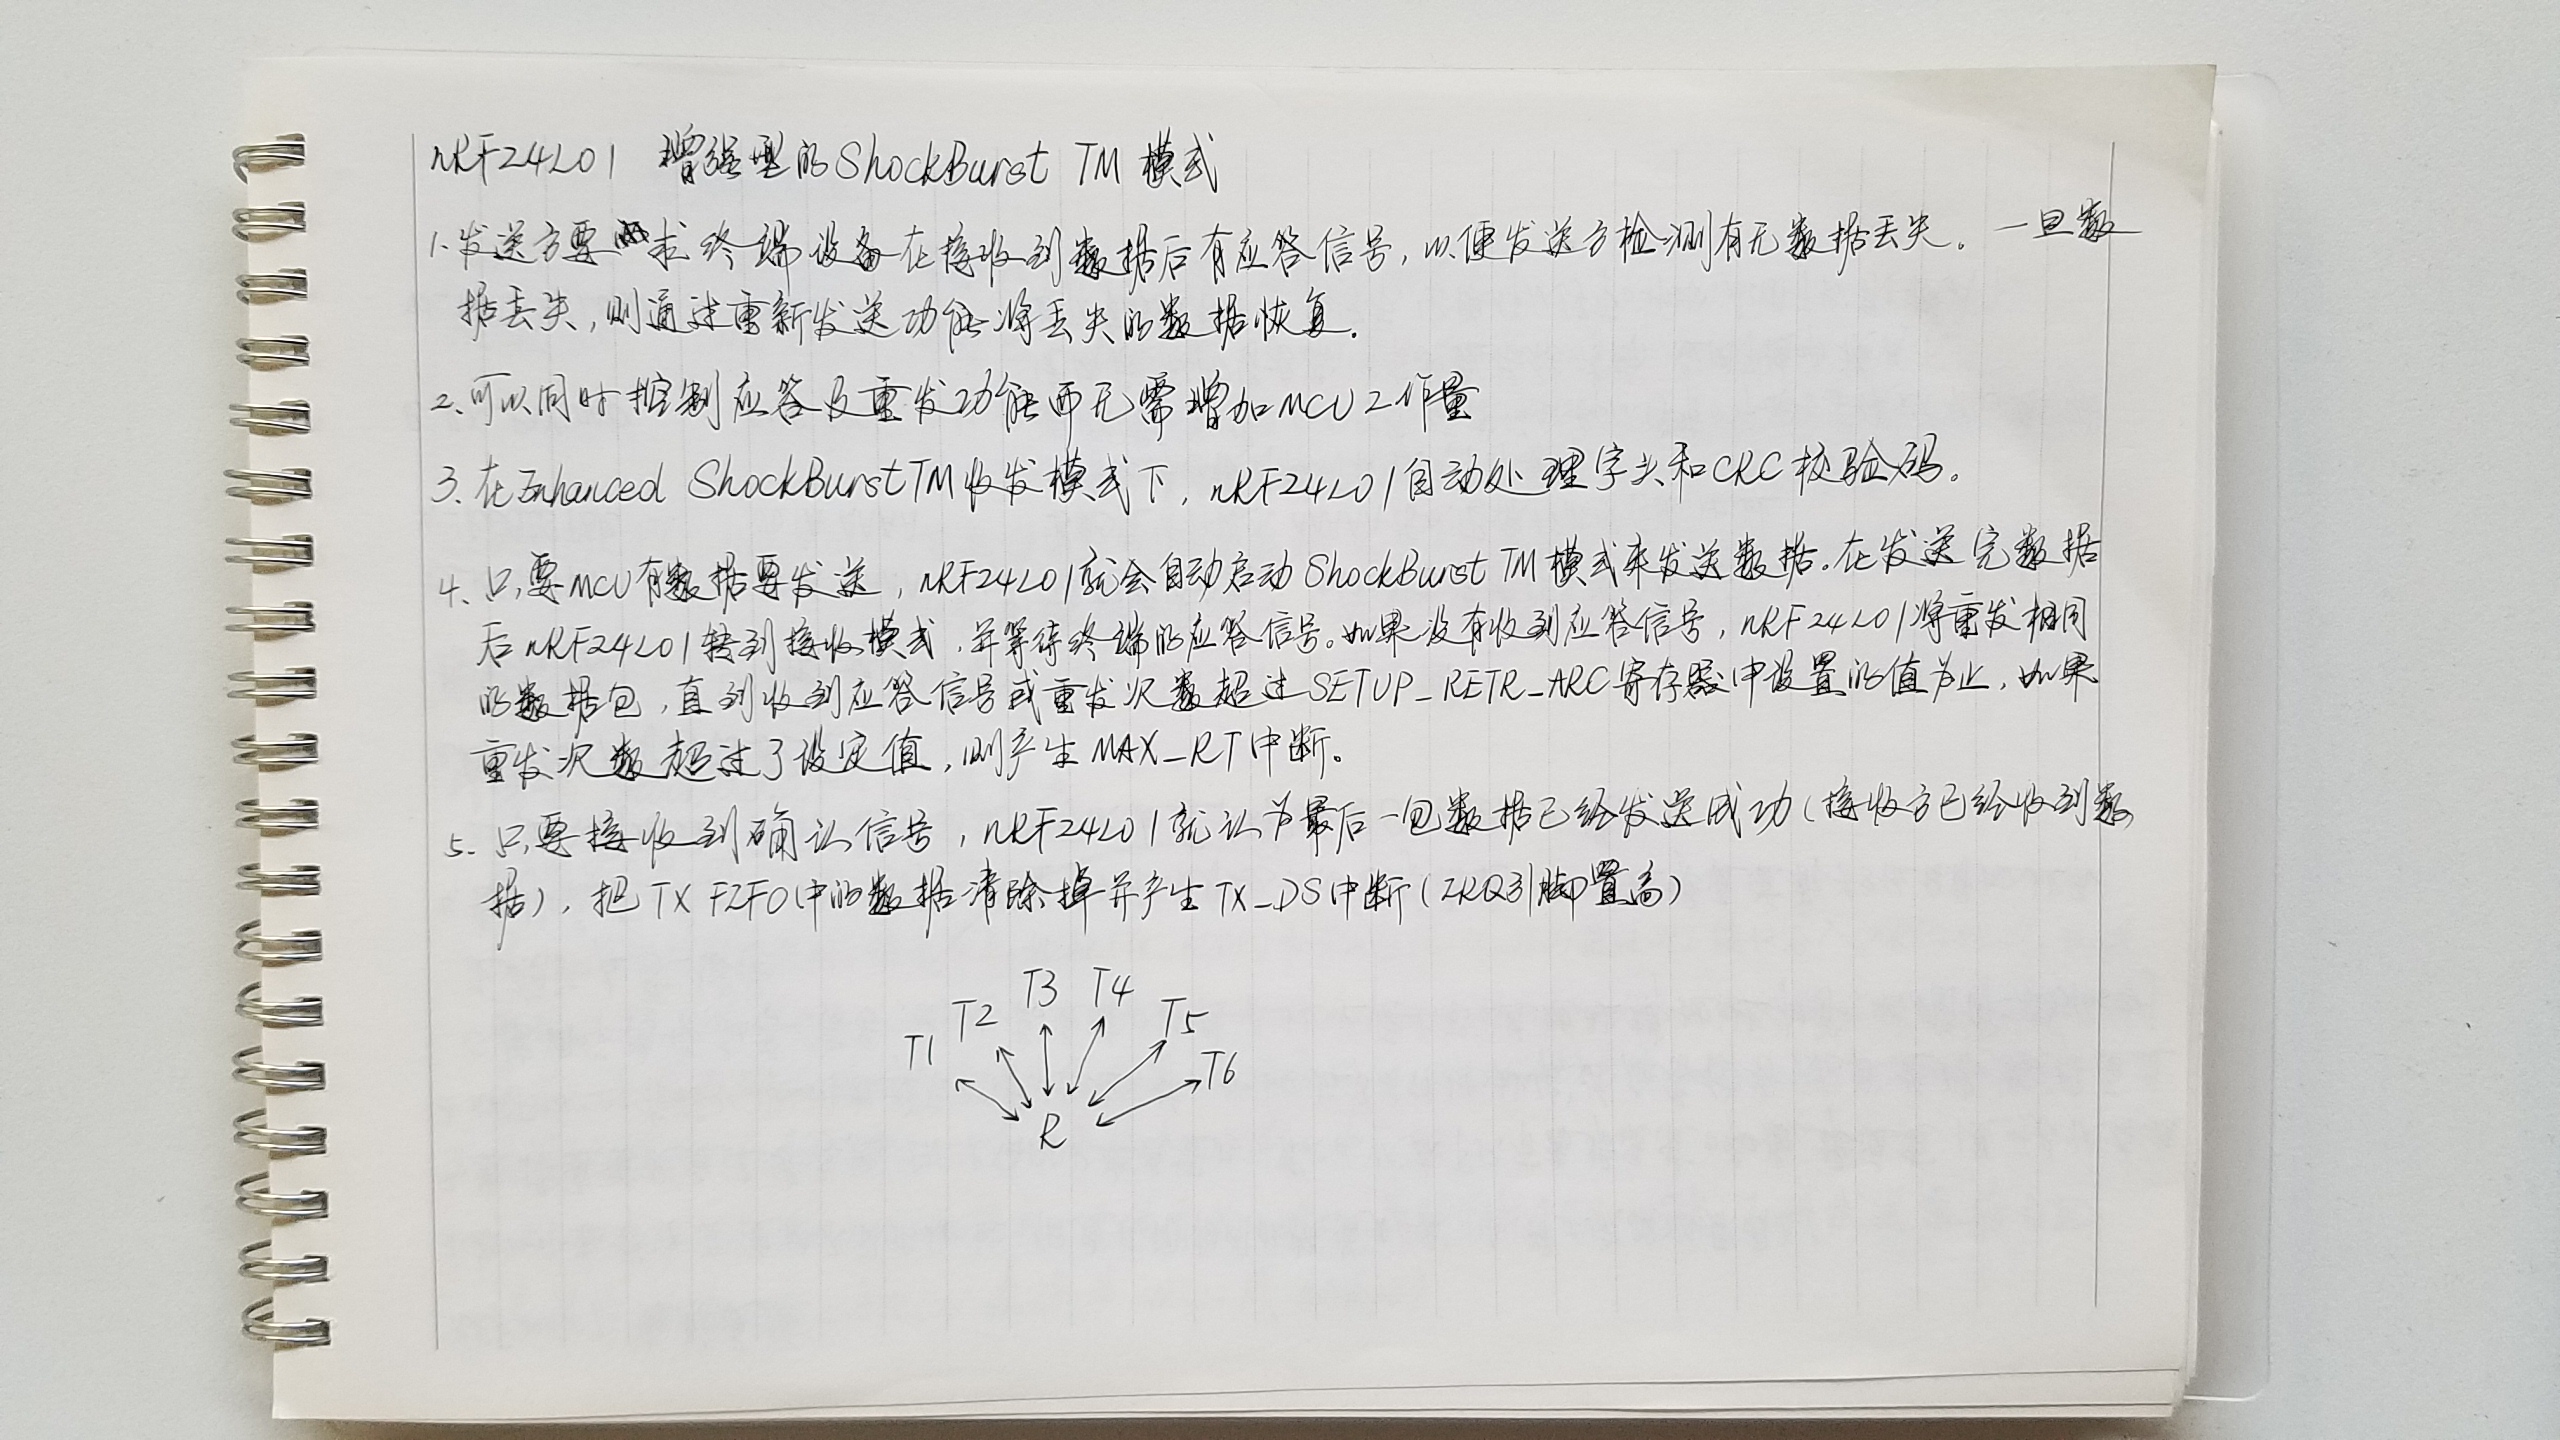 nRF24L01 增强型的ShockBurst TM 模式
1.发送方要求终端设备在接收到数据后有应答信号,以便发送方检测有无数据丢失。一旦数
据丢失,则通过重新发送功能将丢失的数据恢复.
2、可以同时控制应答及重发功能而无需增加MCU工作量
3、在Enhanced ShockBurstTM收发模式下,nRF24L01自动处理字头和CRC校验码。
4、只要MCU有数据要发送,nRF24L01就会自动启动ShockBurst TM模式来发送数据.在发送完数据
后nRF24L01转到接收模式,并等待终端的应答信号。如果没有收到应答信号,nRF24L01将重发相同
的数据包,直到收到应答信号或重发次数超过SETUP_RETR_ARC寄存器中设置的值为止,如果
重发次数超过了设定值,则产生MAX_RT中断。
5、只要接收到确认信号,nRF24L01就认为最后一包数据已经发送成功(接收方已经收到数
据),把TX FIFO中的数据清除掉并产生TX_DS中断(IRQ引脚置高)
T1 T2 T3 T4 T5 T6
R